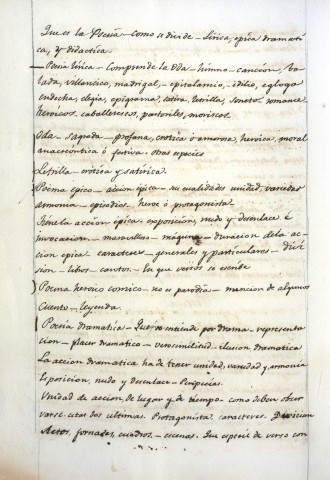 Que es la Poesia - como se divide - Lirica, epica dramati
ca, y didactica.
- Poesia lirica - Comprende la Oda - himno - cancion, ba
lada, villancico, madrigal, - epitalamio, idilio, egloga
endecha, elegia, epigrama, satira, letrilla, soneto, romance
heroicos, caballerescos, pastoriles, moriscos.
Oda - sagrada - profana, erotica ó amorosa, heroica, moral
anacreóntica ó festiva. otras especies
Letrilla - erotica y satírica.
Poema épico - accion épica - sus cualidades unidad, variedad
armonia - episodios, heroe ó protagonista
Tiene la accion épica exposicion, nudo y desenlace é
invocacion - maravilloso - máquina - duracion de la ac
cion epica caracteres - generales y particulares - divi
sion - libros - cantos - En que versos se escribe
Poema heroico comico - no es parodia - mencion de algunos
Cuento - leyenda.
Poesia dramatica - Que se entiende por drama - representa
cion - placer dramatico - verosimilitud - ilusion dramatica
La accion dramatica ha de tener unidad, variedad y armonia
Exposicion, nudo y desenlace - Peripecias.
Unidad de accion, de lugar y de tiempo - como deben obser
varse estas dos ultimas. Protagonista. caracteres. Division
Actos, jornadas, cuadros - escenas. Que especie de verso con